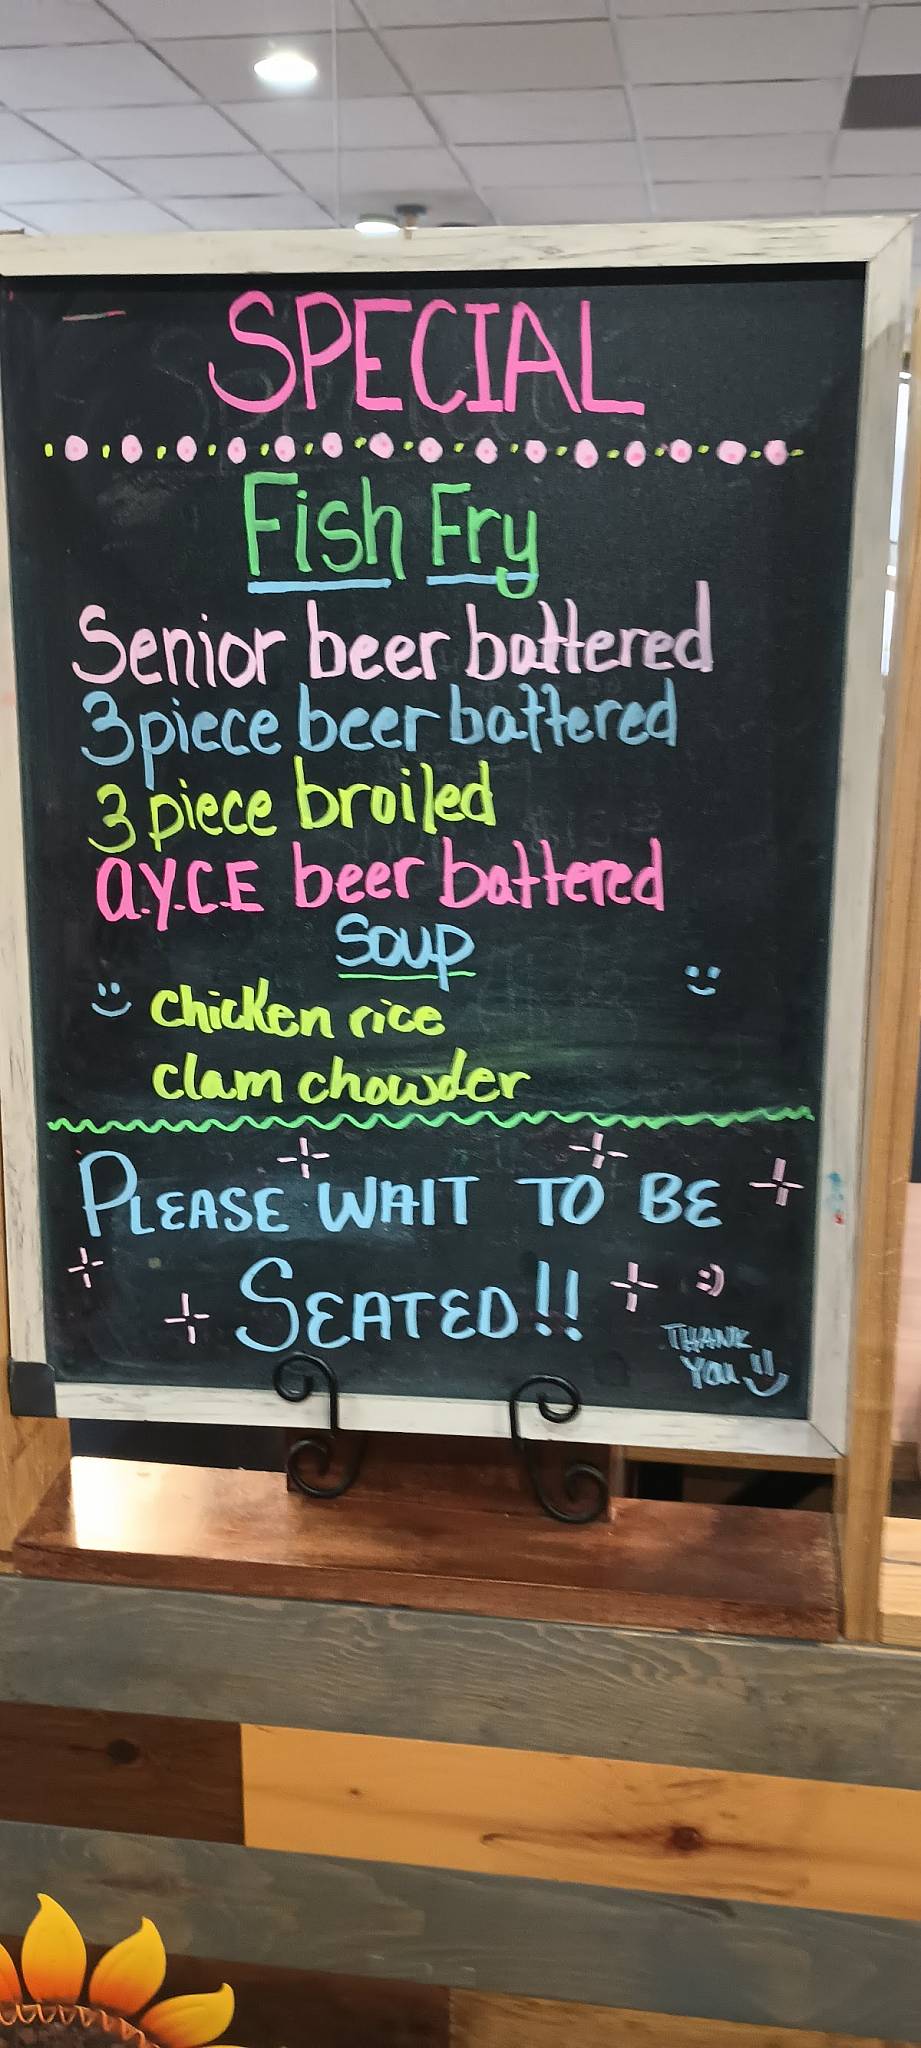 SPECIAL
Fish Fry
Senior beer battered
3 piece beer battered
3 piece broiled
a.y.C.E beer battered
Soup
chicken rice
clam chowder
PLEASE WAIT TO BE
SEATED!!
:)
THANK
YOU